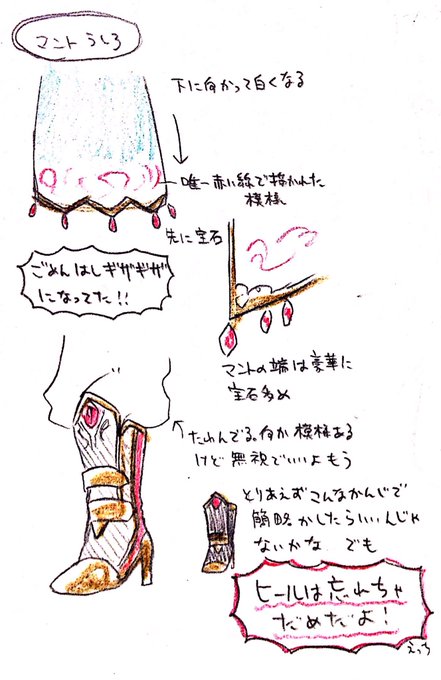 マントうしろ
下に向かって白くなる
唯一赤い線で描かれた
模様
先に宝石
ごめんはしギザギザ
になってた!!
マントの端は豪華に
宝石多め
たわんでる。何か模様ある
けど無視でいいよもう
とりあえずこんなかんじで
簡略かしたらいいんじゃ
ないかな でも
ヒールは忘れちゃ
だめだよ!
えっち